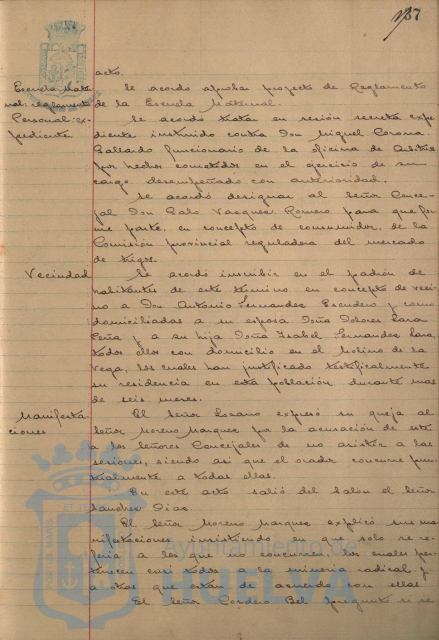 137
acto.
Escuela Mater
nal: reglamento
Se acordó aprobar proyecto de Reglamento
de la Escuela Maternal.
Personal: ex-
pediente
Se acordó tratar en sesión secreta expe
diente instruido contra Don Miguel Corona
Gallardo funcionario de la oficina de
por hechos cometidos en el ejercicio de su
cargo desempeñado con anterioridad.
Se acordó designar al Señor Conce-
jal Don Pablo Vazquez Romero para que for
me parte, en concepto de consumidor, de la
Comisión provincial reguladora del mercado
de trigos.
Vecindad
Se acordó inscribir en el padrón de
habitantes de este término, en concepto de veci
no a Don Antonio Fernandez Escudero y como
domiciliadas a su esposa Doña Dolores Lara
Peña y a su hija Doña Isabel Fernandez Lara,
todos ellos con domicilio en el Molino de la
Vega, los cuales han justificado testificalmente
su residencia en esta población durante mas
de seis meses.
Manifesta-
ciones
El Señor Lozano expresó su queja al
Señor Moreno Marquez por la acusación de este
a los Señores Concejales de no asistir a las
sesiones, siendo asi que el orador concurre pun
tualmente a todas ellas.
En este acto salió del Salon el Señor
Sanchez Diaz.
El Señor Moreno Marquez explicó sus ma
nifestaciones insistiendo en que solo se re-
feria a los que no concurren, los cuales per-
tenecen casi todos a la minoria radical y
a otras que estan de acuerdo con ellas.
El Señor Cordero Bel preguntó si se
Ayuntamiento de
HUELVA